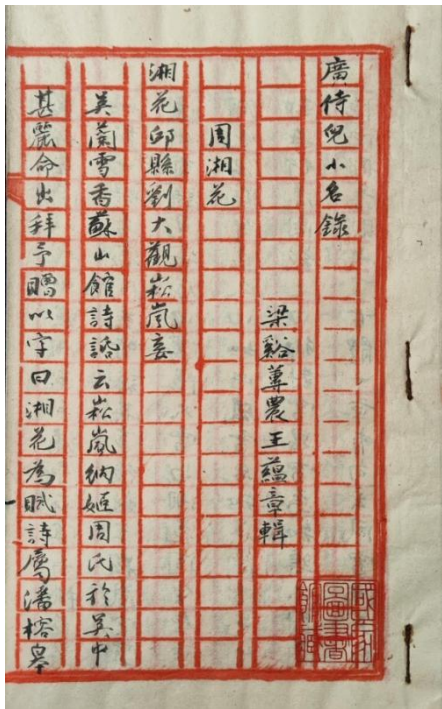 廣侍兒小名錄
梁谿蓴農王蘊章輯
周湘花
湘花邱縣劉大觀崧嵐妾
吳蘭雪香蘇山館詩話云崧嵐納姬周氏於吳中
甚麗命出拜予贈以字曰湘花為賦詩屬潘榕皋
國家圖書館藏